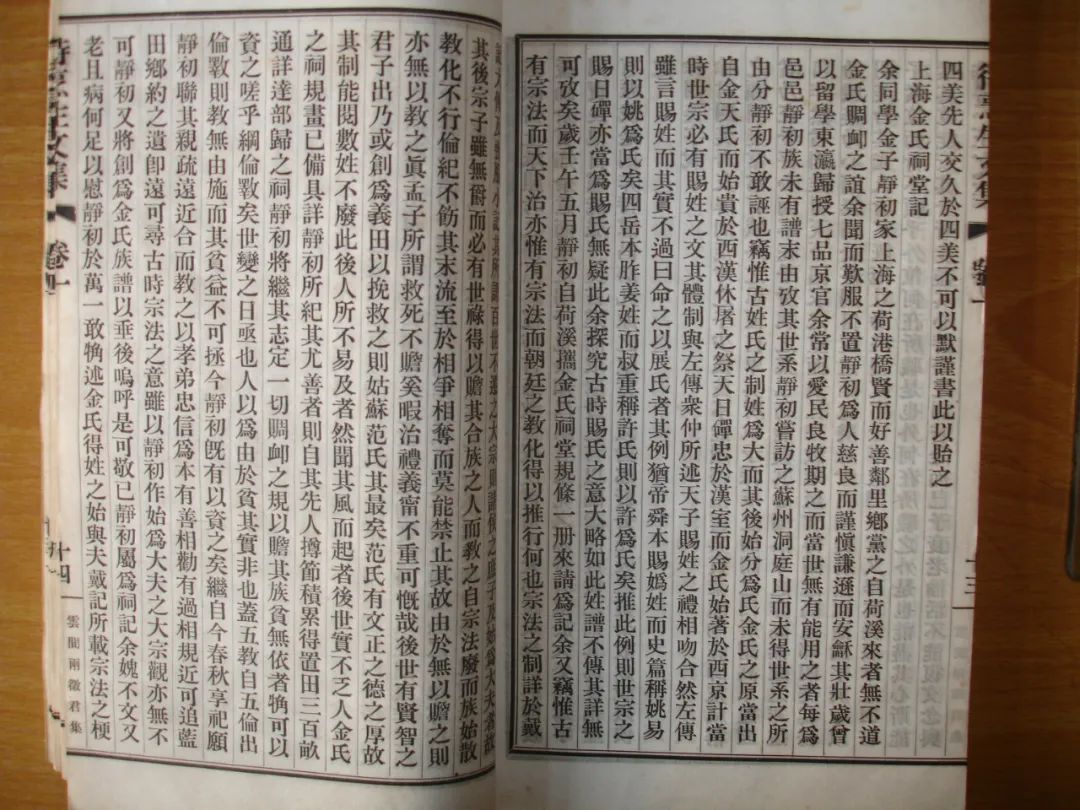 四美先人交久於四美不可以默謹書此以貽之
上海金氏祠堂記
余同學金子靜初家上海之荷港橋賢而好善鄰里鄉黨之自荷溪來者無不道
金氏賙卹之誼余聞而歎服不置靜初爲人慈良而謹愼謙遜而安龢其壯歲曾
以留學東瀛歸授七品京官余常以愛民良牧期之而當世無有能用之者每爲
邑邑靜初族未有譜末由攷其世系靜初嘗訪之蘇州洞庭山而未得世系之所
由分靜初不敢誣也竊惟古姓氏之制姓爲大而其後始分爲氏金氏之原當出
自金天氏而始貴於西漢休屠之祭天日磾忠於漢室而金氏始著於西京計當
時世宗必有賜姓之文其體制與左傳衆仲所述天子賜姓之禮相吻合然左傳
雖言賜姓而其實不過曰命之以展氏者其例猶帝舜本賜嬀姓而史篇稱姚易
則以姚爲氏矣四岳本胙姜姓而叔重稱許氏則以許爲氏矣推此例則世宗之
賜日磾亦當爲賜氏無疑此余探究古時賜氏之意大略如此姓譜不傳其詳無
可攷矣歲壬午五月靜初自荷溪攜金氏祠堂規條一册來請爲記余又竊惟古
有宗法而天下治亦惟有宗法而朝廷之教化得以推行何也宗法之制詳於戴
其後宗子雖無爵而必有世祿得以贍其合族之人而教之自宗法廢而族始散
教化不行倫紀不飭其末流至於相爭相奪而莫能禁止其故由於無以贍之則
亦無以教之眞孟子所謂救死不贍奚暇治禮義甯不重可慨哉後世有賢智之
君子出乃或創爲義田以挽救之則姑蘇范氏其最矣范氏有文正之德之厚故
其制能閱數姓不廢此後人所不易及者然聞其風而起者後世實不乏人金氏
之祠規畫已備具詳靜初所紀其尤善者則自其先人撙節積累得置田三百畝
通詳達部歸之祠靜初將繼其志定一切賙卹之規以贍其族貧無依者觕可以
資之嗟乎綱倫斁矣世變之日亟也人以爲由於貧其實非也蓋五教自五倫出
倫斁則教無由施而其貧益不可拯今靜初旣有以資之矣繼自今春秋享祀願
靜初聯其親疏遠近合而教之以孝弟忠信爲本有善相勸有過相規近可追藍
田鄉約之遺卽遠可尋古時宗法之意雖以靜初作始爲大夫之大宗觀亦無不
可靜初又將創爲金氏族譜以垂後嗚呼是可敬已靜初屬爲祠記余媿不文又
老且病何足以慰靜初於萬一敢觕述金氏得姓之始與夫戴記所載宗法之梗
卷一
十四
雲間兩徵君集